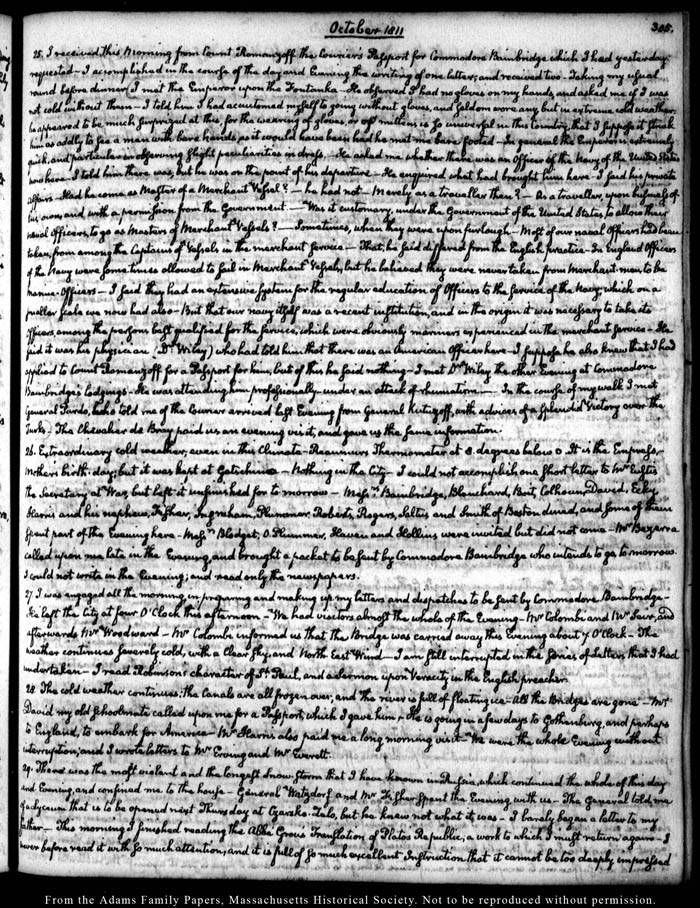 October 1811
305.
25. I received this Morning from Count Romanzoff the Courier's Passport for Commodore Bainbridge which I had yesterday
requested — I accomplished in the course of the day and Evening the writing of one letter; and received two — Taking my usual
round before dinner, I met the Emperor upon the Fontanka — He observed I had no gloves on my hands, and asked me if I was
not cold without them — I told him I had accustomed myself to going without gloves, and seldom wore any but in extreme cold weather.
he appeared to be much surprized at this, for the wearing of gloves, or of mittens is so universal in this Country, that I suppose it struck
him as oddly to see a man with bare hands, as it would have been had he met me bare footed — In general the Emperor is extremely
quick and particular in observing slight peculiarities in dress — He asked me whether there was an Officer of the Navy of the United States
now here. I told him there was, but he was on the point of his departure — He enquired what had brought him here — I said his private
affairs — Had he come as Master of a Merchant Vessel? — he had not — Merely as a traveller then? — As a traveller, upon business of
his own and with a permission from the Government — Was it customary, under the Government of the United States, to allow their
naval Officers, to go as Masters of Merchant Vessels? — Sometimes, when they were upon furlough — Most of our naval Officers had been
taken from among the Captains of Vessels in the merchant service — That, he said differed from the English practice — In England Officers
of the Navy were sometimes allowed to sail in Merchant Vessels, but he believed they were never taken from Merchant-men to be
Officers — I said they had an extensive System for the regular education of Officers to the Service of the Navy, which on a
smaller scale we now had also — But that our navy itself was a recent institution, and in the origin it was necessary to take its
Officers among the persons best qualified for the service, which were obviously mariners experienced in the merchant service — He
said it was his physician (Dr. Wiley) who had told him that there was an American Officer here — I suppose he also knew that I had
applied to Count Romanzoff for a Passport for him, but of this he said nothing — I met Dr. Wiley the other Evening at Commodore
Bainbridge's lodgings — He was attending him professionally under an attack of rheumatism — In the course of my walk I met
General Pardo, who told me of the Courier arrived last Evening from General Kutuzoff, with advices of a splendid Victory over the
Turks — The Chevalier de Bray paid us an evening visit, and gave us the same information.
26. Extraordinary cold weather, even in this Climate — Reaumur's Thermometer at 8 degrees below 0. It is the Empress-
Mother's birth-day; but it was kept at Gatschina — Nothing in the City — I could not accomplish one short letter to Mr Eustis
the Secretary at War, but left it unfinished for to morrow — Messrs. Bainbridge, Blanchard, Calhoun, David,
Harris and his nephew, Fisher, Ingraham, Plummer, Roberts, Rogers, Saltus and Smith of Boston dined, and some of them
spent part of the Evening here — Messrs. Blodget, O. Plummer, and Hollins were invited but did not come — Mr Bezerra
called upon me late in the Evening, and brought a packet to be sent by Commodore Bainbridge who intends to go to morrow.
I could not write in the Evening; and read only the newspapers.
27. I was engaged all the morning, in preparing and making up my letters and dispatches to be sent by Commodore Bainbridge —
He left the City at four O'Clock this afternoon — We had visitors almost the whole of the Evening — Mr Colombi and Mr and
afterwards Mr Woodward — Mr Colombi informed us that the Bridge was carried away this Evening about 7 O'Clock — The
weather continues severely cold, with a Clear sky, and North East Wind — I am still interrupted in the Series of Letters that I had
undertaken — I read Robinson's character of St. Paul, and a sermon upon Veracity in the English preacher.
28. The cold weather continues; the Canals are all frozen over, and the river is full of floating ice — All the Bridges are gone — Mr
David my old schoolmate called upon me for a Passport, which I gave him — He is going in a few days to Gothenburg, and perhaps
to England, to embark for America — Mr Harris also paid me a long morning visit — We were the whole Evening without
interruption; and I wrote letters to Mr Erving and Mr Everett.
29. There was the most violent and the longest snow storm that I have known in Russia, which continued the whole of this day
and Evening, and confined me to the house — General Watzdorf and Mr Fisher spent the Evening with us — The General told me
of a Lyceum that is to be opened next Thursday at Czarsko-Zelo, but he knew not what it was — I barely began a letter to my
father — This morning I finished reading the Abbé Grou's Translation of Plato's Republic, a work to which I must return again — I
never before read it with so much attention, and it is full of so much excellent Instruction that it cannot be too deeply impressed
From the Adams Family Papers, Massachusetts Historical Society. Not to be reproduced without permission.